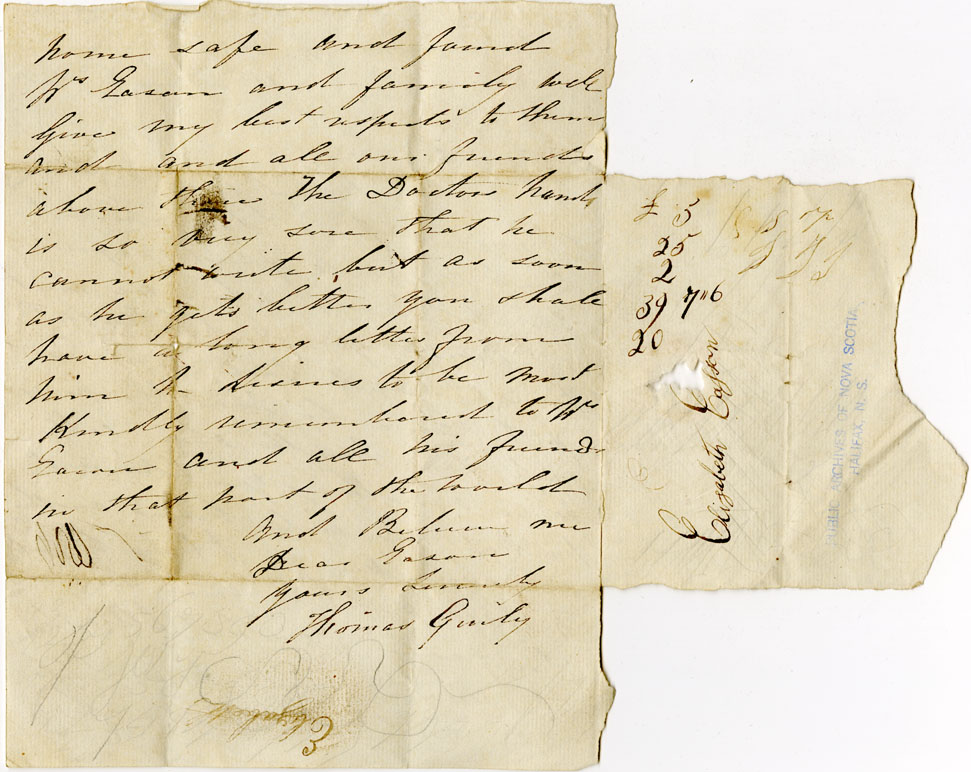 home safe and found
Mrs Eason and family well
Give my best respects to them
and and all our friends
above there The Doctors hand
is so very sore that he
cannot write but as soon
as he gets better you shall
have a long letter from
him he desires to be most
Kindly remembered to Mrs
Eason and all his friends
in that part of the world
And Believe me
Dear Eason
Yours Sincerely
Thomas
£ 3
25
2
39 7"6
20
Elizabeth Eason
PUBLIC ARCHIVES OF NOVA SCOTIA
HALIFAX, N. S.
Elizabeth
E